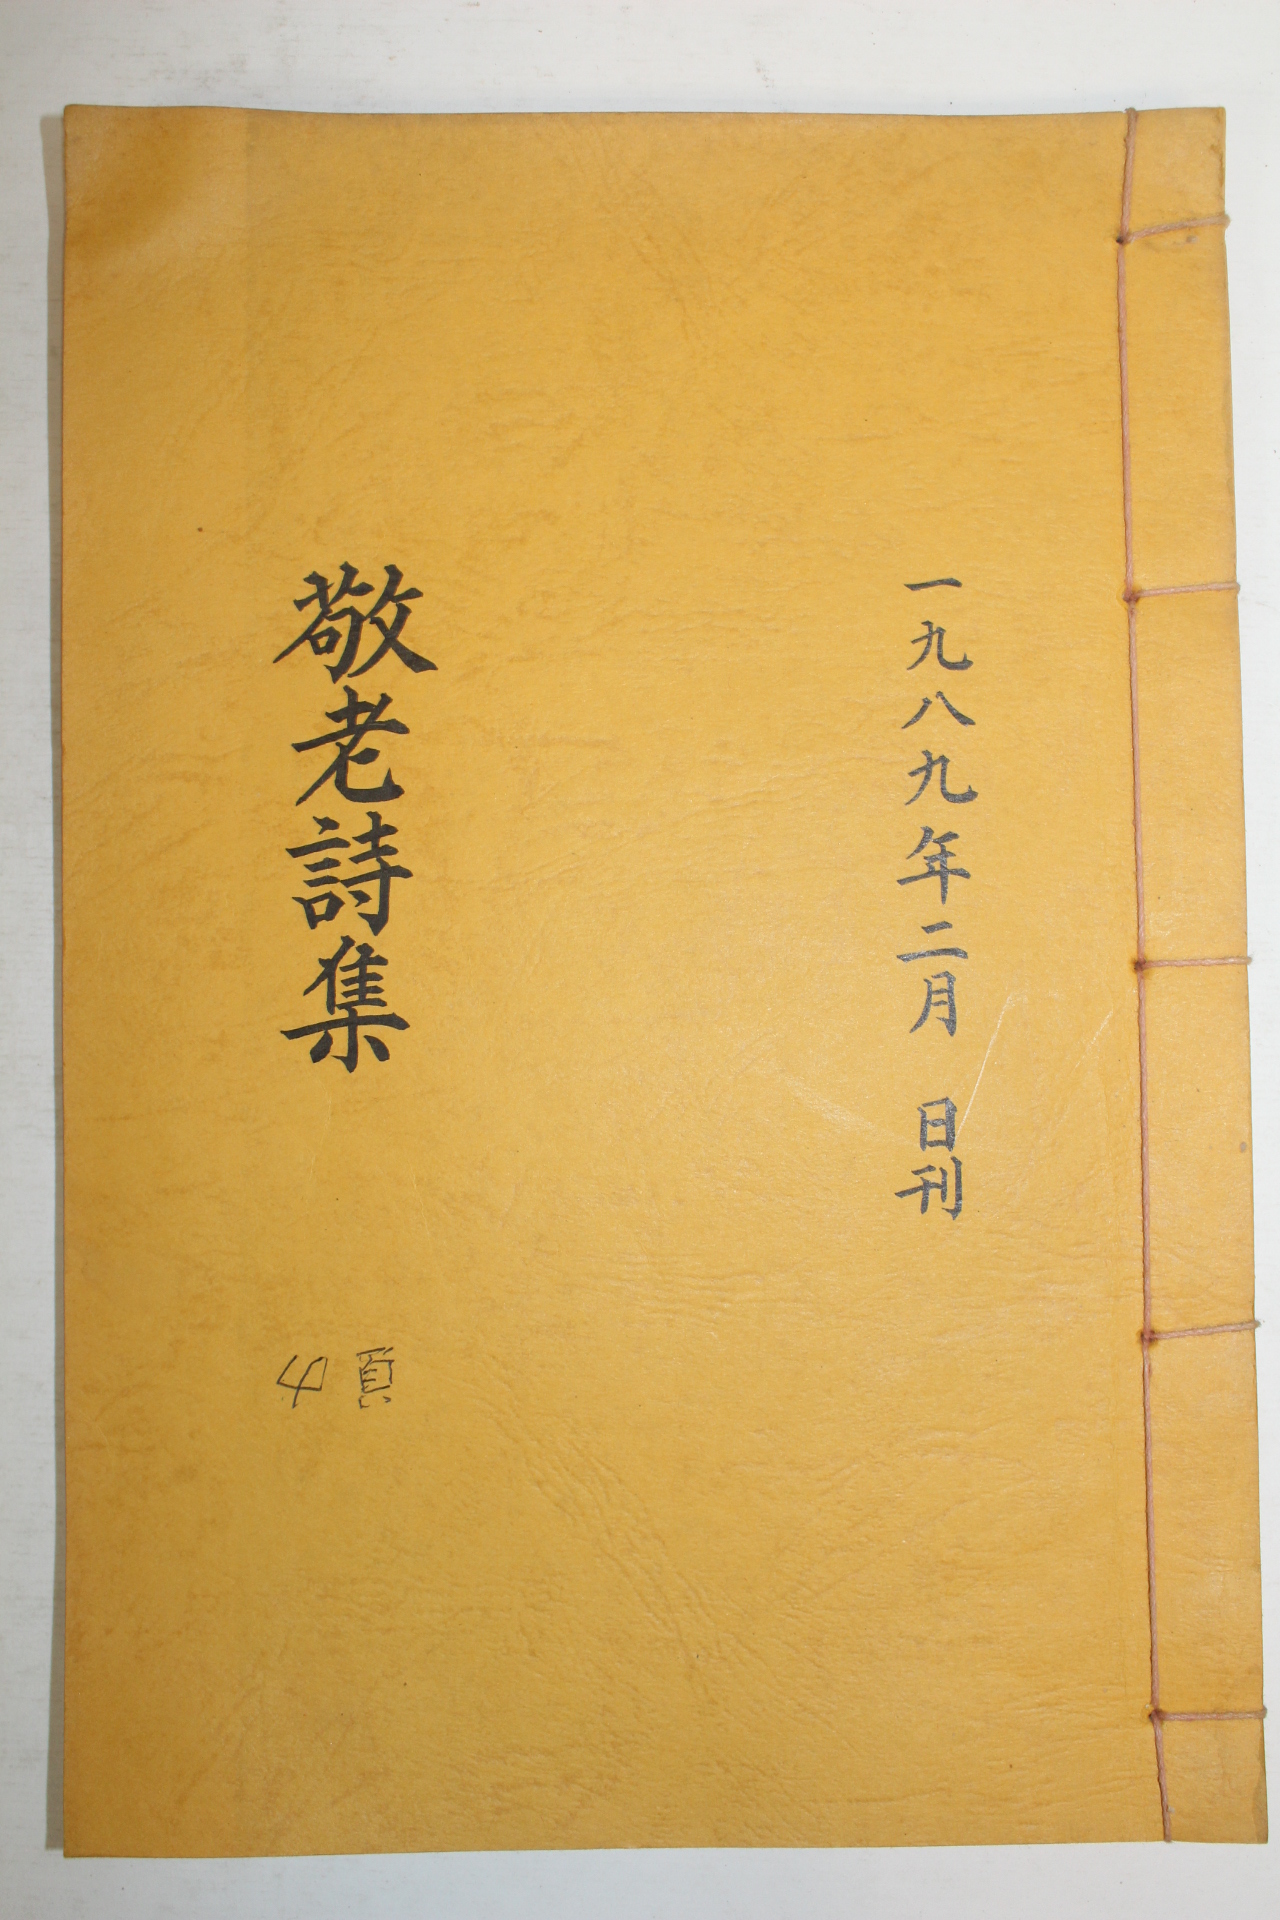 一九八九年二月 日刊
敬老詩集